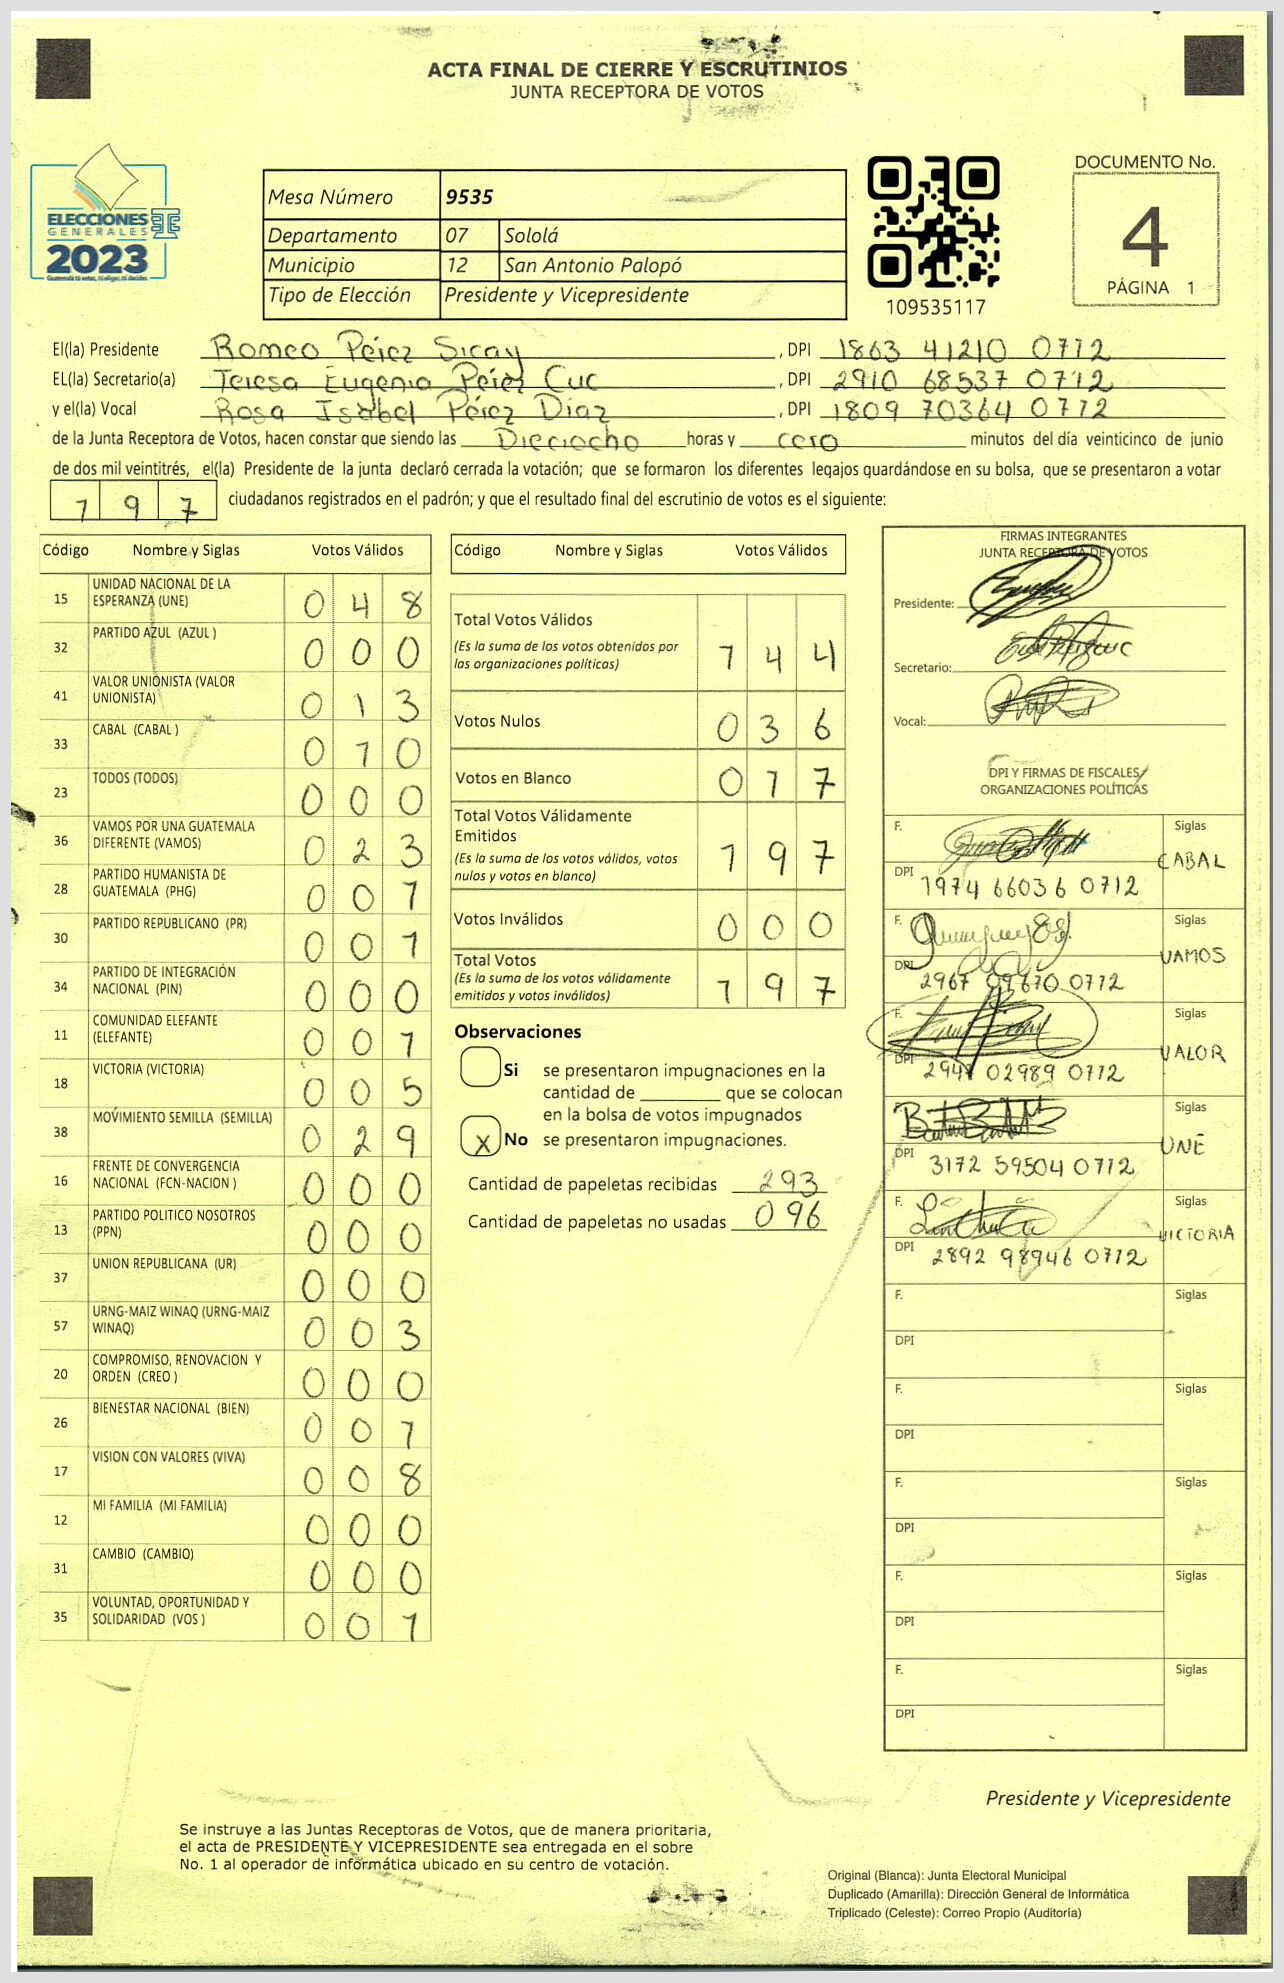 ACTA FINAL DE CIERRE Y ESCRUTINIOS
JUNTA RECEPTORA DE VOTOS
ELECCIONES
GENERALES
2023
Mesa Número 9535
Departamento 07 Sololá
Municipio 12 San Antonio Palopó
Tipo de Elección Presidente y Vicepresidente
109535117
DOCUMENTO No.
4
PÁGINA 1
El(la) Presidente Romeo Pérez Sicay , DPI 1863 41210 0712
EL(la) Secretario(a) Teresa Eugenia Pérez Cuc , DPI 2910 68537 0712
y el(la) Vocal Rosa Isabel Pérez Díaz , DPI 1809 70364 0712
de la Junta Receptora de Votos, hacen constar que siendo las Dieciocho horas y cero minutos del día veinticinco de junio
de dos mil veintitrés, el(la) Presidente de la junta declaró cerrada la votación; que se formaron los diferentes legajos guardándose en su bolsa, que se presentaron a votar
1 9 7 ciudadanos registrados en el padrón; y que el resultado final del escrutinio de votos es el siguiente:
Código Nombre y Siglas Votos Válidos
15 UNIDAD NACIONAL DE LA
ESPERANZA (UNE) 0 4 8
32 PARTIDO AZUL (AZUL ) 0 0 0
41 VALOR UNIONISTA (VALOR
UNIONISTA) 0 1 3
33 CABAL (CABAL ) 0 1 0
23 TODOS (TODOS) 0 0 0
36 VAMOS POR UNA GUATEMALA
DIFERENTE (VAMOS) 0 2 3
28 PARTIDO HUMANISTA DE
GUATEMALA (PHG) 0 0 1
30 PARTIDO REPUBLICANO (PR) 0 0 1
34 PARTIDO DE INTEGRACIÓN
NACIONAL (PIN) 0 0 0
11 COMUNIDAD ELEFANTE
(ELEFANTE) 0 0 1
18 VICTORIA (VICTORIA) 0 0 5
38 MOVIMIENTO SEMILLA (SEMILLA) 0 2 9
16 FRENTE DE CONVERGENCIA
NACIONAL (FCN-NACION ) 0 0 0
13 PARTIDO POLITICO NOSOTROS
(PPN) 0 0 0
37 UNION REPUBLICANA (UR) 0 0 0
57 URNG-MAIZ WINAQ (URNG-MAIZ
WINAQ) 0 0 3
20 COMPROMISO, RENOVACION Y
ORDEN (CREO ) 0 0 0
26 BIENESTAR NACIONAL (BIEN) 0 0 1
17 VISION CON VALORES (VIVA) 0 0 8
12 MI FAMILIA (MI FAMILIA) 0 0 0
31 CAMBIO (CAMBIO) 0 0 0
35 VOLUNTAD, OPORTUNIDAD Y
SOLIDARIDAD (VOS ) 0 0 1
Código Nombre y Siglas Votos Válidos
Total Votos Válidos
(Es la suma de los votos obtenidos por
las organizaciones políticas) 1 4 4
Votos Nulos 0 3 6
Votos en Blanco 0 1 7
Total Votos Válidamente
Emitidos
(Es la suma de los votos válidos, votos
nulos y votos en blanco) 1 9 7
Votos Inválidos 0 0 0
Total Votos
(Es la suma de los votos válidamente
emitidos y votos inválidos) 1 9 7
Observaciones
Si se presentaron impugnaciones en la
cantidad de ________ que se colocan
en la bolsa de votos impugnados
X No se presentaron impugnaciones.
Cantidad de papeletas recibidas 293
Cantidad de papeletas no usadas 096
FIRMAS INTEGRANTES
JUNTA RECEPTORA DE VOTOS
Presidente:
Secretario:
Vocal:
DPI Y FIRMAS DE FISCALES/
ORGANIZACIONES POLÍTICAS
F. Siglas
CABAL
DPI 1974 66036 0712
F. Siglas
VAMOS
DPI 2967 09670 0712
F. Siglas
VALOR
DPI 2947 02989 0712
Siglas
UNE
DPI 3172 59504 0712
F. Siglas
VICTORIA
DPI 2892 98946 0712
F. Siglas
DPI
F. Siglas
DPI
F. Siglas
DPI
F. Siglas
DPI
F. Siglas
DPI
Presidente y Vicepresidente
Se instruye a las Juntas Receptoras de Votos, que de manera prioritaria,
el acta de PRESIDENTE Y VICEPRESIDENTE sea entregada en el sobre
No. 1 al operador de informática ubicado en su centro de votación.
Original (Blanca): Junta Electoral Municipal
Duplicado (Amarilla): Dirección General de Informática
Triplicado (Celeste): Correo Propio (Auditoría)